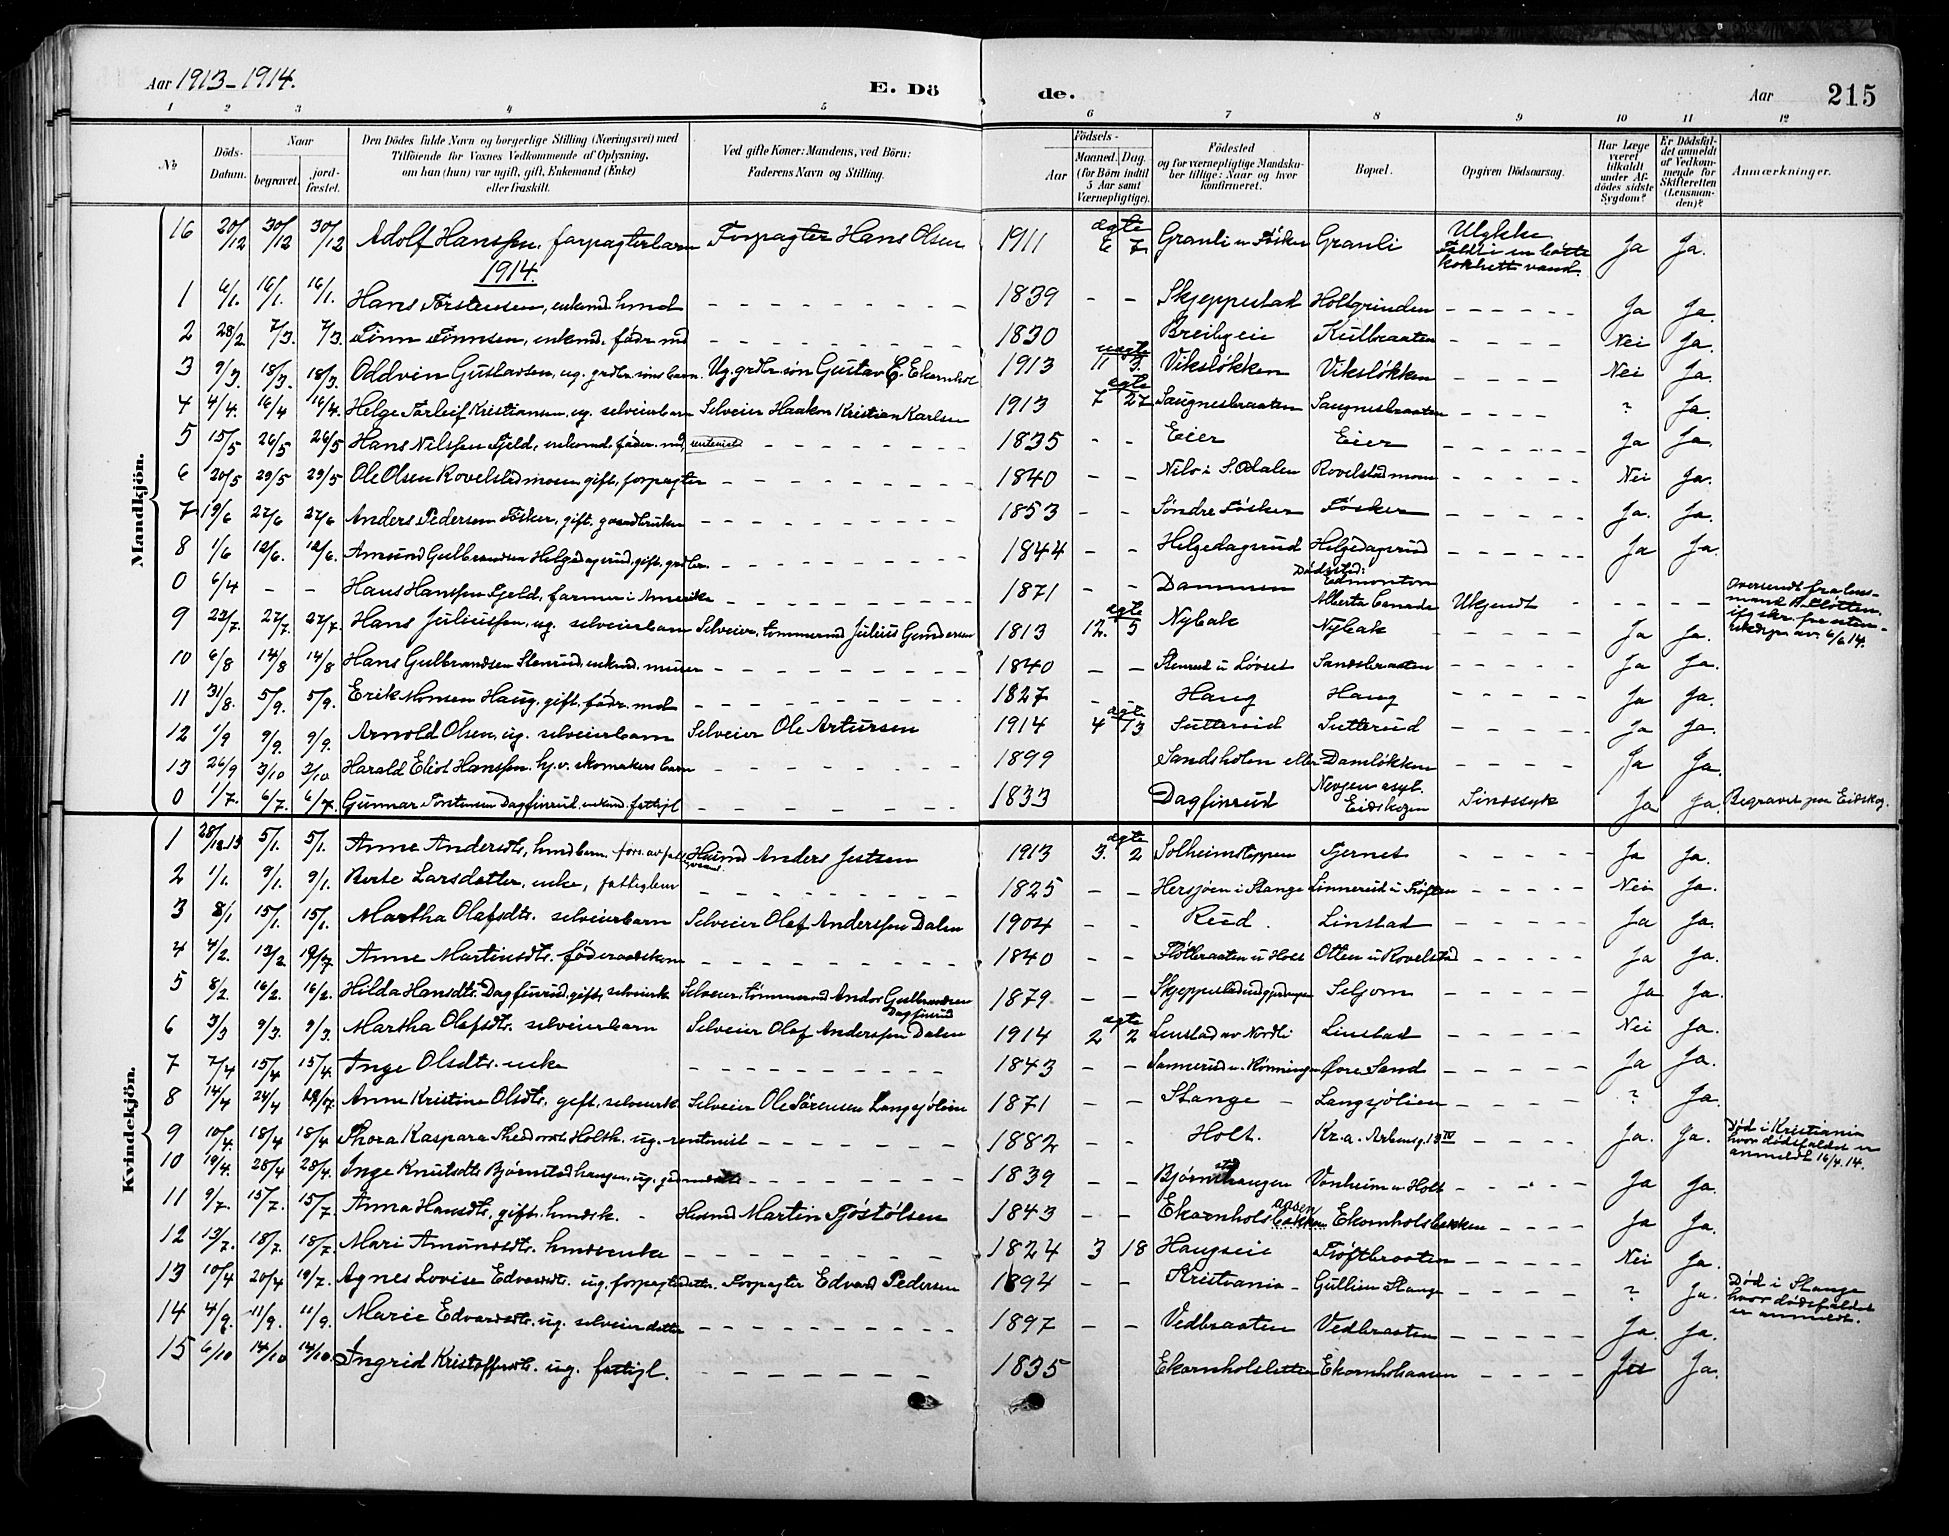 Aar 1913-1914. E. Dö de. Aar 215
1 2 3 4 5 6 7 8 9 10 11 12
№ Döds-Datum. Naar begravet. jord-fæstet. Den Dödes fulde Navn og borgerlige Stilling (Næringsvei) med Tilföiende for Voxnes Vedkommende af Oplysning, om han (hun) var ugift, gift, Enkemand (Enke) eller fraskilt. Ved gifte Koner: Mandens, ved Börn: Faderens Navn og Stilling. Födsels- Aar Maaned. Dag. (for Börn indtil 5 Aar samt Værnepligtige). Födested og for værnepligtige Mandskaber tillige: Naar og hvor konfirmeret. Bopæl. Opgiven Dödsaarsag. Har Læge været tilkaldt under Afdödes sidste Sygdom? Er Dödsfaldet anmeldt af Vedkommende for Skifteretten (Lensmanden)? Anmærkninger.
Mandkjön.
16 20/12 30/12 30/12 Adolf Hanssen, forpagterbarn Forpagter Hans Olsen 1911 ægte 6 7 Granli u Fosker Granli Ulykke Faldt i en bötte kokhett vand. Ja Ja.
1914.
1 6/1. 16/1. 16/1. Hans Torstensen, enkmd. hmd - - - 1839 - - Skjeppestad Holtgrinden - - - Ja Ja.
2 28/2. 7/3. 7/3. Finn Finnsen, enkmd. födr. md - - - 1830 Breibyeie Kulbraaten - - - Nei Ja.
3 9/3. 18/3. 18/3. Oddvin Gustavsen, ug. grdbr. söns barn. Ug. grdbr. sön Gustav E. Ekornhol 1913 uægte 11 3. Viksløkken Viksløkken - - - Nei Ja.
4 4/4. 16/4 16/4. Helge Torleif Kristiansen, ug. selveierbarn Selveier Haakon Kristian Karlsen 1913 ægte 7 27 Saugnesbraaten Saugnesbraaten - - - ? Ja.
5 15/5 26/5 26/5 Hans Nilssen Fjeld, enkemd. föder. md, - - - 1835 - - Eier Eier - - - Ja Ja.
6 20/5 29/5 29/5 Ole Olsen Rovelstadmoen, gift, forpagter - - - 1840 - - Nilo i S. Odalen Rovelstadmoen - - - Nei Ja.
7 19/6 27/6 27/6 Anders Pedersen Fosker, gift. gaardbruker - - - 1853 - - Søndre Fosker Fosker - - - Ja. Ja.
8 1/6 12/6. 12/6. Amund Gulbrandsen Helgedagsrud, gift. grdbr. - - - 1844 - - Helgedagsrud Helgedagsrud - - - Ja Ja.
0 6/4 - - Hans Hanssen Fjeld, farmer i Amerika - - - 1871 - - Dammen Dödssted: Edmonton Alberta Canada Ukjendt - - - Oversendt fra lensmand
9 22/7. 27/7. 27/7. Hans Juliussen, ug. selveierbarn Selveier, tømmermd Julius Gundersen 1813 ægte 12. 5 Nybak Nybak - - - Ja Ja. 6/6 14.
10 6/8 14/8 14/8 Hans Gulbrandsen Stenrud, enkmd. murer - - - 1840 - - Stenrud u Løvset Sandsbraaten - - - Ja Ja.
11 31/8. 5/9. 5/9. Erik Monsen Haug, gift, födr. md - - - 1827 - Haug Haug - - - Ja Ja.
12 1/9 9/9. 9/9. Arnold Olsen, ug. selveierbarn Selveier Ole Artursen 1914 ægte 4 13 Sutterud Sutterud - - - Ja Ja.
13 26/9 3/10 3/10 Harald Eliot Hanssen. hj.v. skomakers barn - - - 1899 Sandsholen eller Damløkken - - - Ja Ja.
0 1/7. 6/7. 6/7. Gunnar Torstensen Dagfinrud, enkmd. fattigl - - - 1833 Dagfinrud asyl. Eidskogen Sindssyk Ja Ja. Begravet paa Eidskog.
Kvindekjön.
1 28/12.13 5/1. 5/1. Anne Andersdtr, hmdbarn Husmd Anders Jensen 1913 ægte 3. 2 Solheimsteppen Tjernet - - - Ja Ja.
2 1/1. 9/1. 9/1. Berte Larsdatter, enke, fattiglem - - - 1825 - - Hersjøen i Stange Linnerud u Trøften - - - Nei Ja.
3 8/1 15/1. 15/1. Martha Olafsdtr. selveierbarn Selveier Olaf Anderssen Dalen 1904 - - Rud. Linstad - - - Ja Ja.
4 4/2. 13/2. Anne Martinsdtr. föderaadskone - - - 1840 - - Flötbraaten u Holt Otten u Rovelstad - - - Ja Ja.
5 8/2. 16/2. 16/2. Hilda Hansdtr. Dagfinrud, gift, selveierk. Selveier, tömmermd Andor Gulbrandsen Dagfinrud 1879 - - Seljom - - - Ja Ja.
6 3/3 9/3. 9/3. Martha Olafsdtr. selveierbarn Selveier Olaf Anderssen Dalen 1914 ægte 2 2 Linstad av Nordli Linstad - - - Nei Ja.
7 7/4 15/4 15/4. Inge Olsdtr. enke - - - 1843 - - Sannerud u. Rønningen Øvre Sand - - - Ja Ja.
8 14/4 24/4 Anne Kristine Olsdtr, gift, selveierk. Selveier Ole Sørensen Langsjølien 1871 - - Stange - Langsjølien - - - ? Ja.
9 10/4. 18/4 18/4 Thora Kaspara Theodorsdtr Holth. ug. rentenist - - - 1882 - - Holt. Kr.a. Arbensg. 13 IV - - - Ja. Ja. Död i Kristiania hvor dödsfaldet er anmeldt 16/4.14.
10 19/4. 28/4 28/4. Inge Knutsdtr Bjørnstadhaugen, ug. - - - 1839 - - Bjørnstadhaugen Vonheim u Holt - - - Ja Ja.
11 9/7. 15/7. 15/7. Anna Hansdtr, gift. hmdsk. - Husmd Martin Tjöstölsen 1843 - - Ekornholsbakken Ekornholsbakken - - - Ja Ja.
12 13/7. 18/7. 18/7. Mari Amundsdtr. hmdsenke - - - 1824 3 18 Haugseie Trøftbraaten - - - Nei Ja.
13 10/4 20/4 19/7. Agnes Lovise Edvardsdtr. ug. forpagterdatter. Forpagter Edvard Pedersen 1894 - - Kristiania - Gullien Stange - - - ? Ja. Död i Stange hvor dödsfaldet er anmeldt.
14 4/9. 11/9. 11/9. Marie Edvardsdtr. ug. selveierdatter - - - 1897 - - Vedbraaten Vedbraaten - - - Ja. Ja.
15 6/10 14/10 14/10. Ingrid Kristoffersdtr. ug. fattigl. - - - 1835 Ekornholsletten Ekornholsaasen - - - Ja Ja.